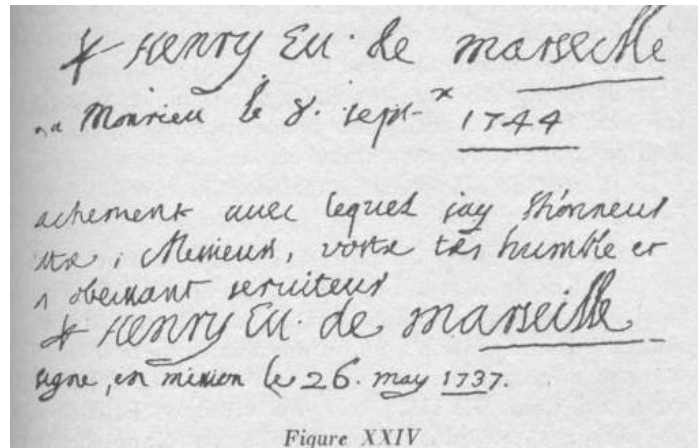 + Henry Ev. de marseille
le 8. sept. x 1744
achement auec lequel jay l'honneur
Messieurs, vostre tres humble et
obeissant seruiteur
+ Henry Ev. de marseille
signe, en mission le 26. may 1737.
Figure XXIV